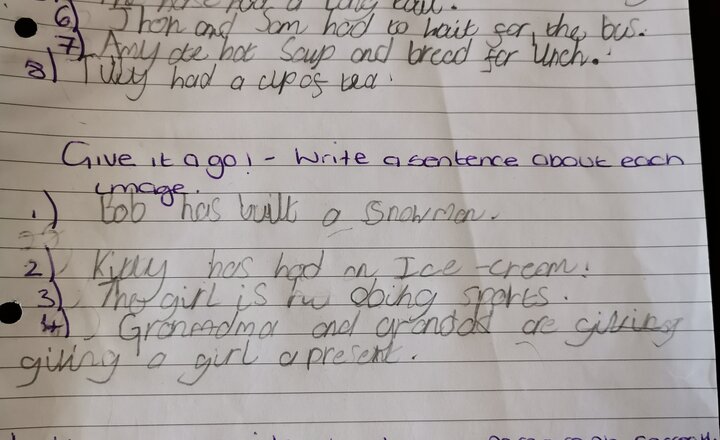 a long tail.
6) Jhon and Sam had to wait for the bus.
7) Amy ate hot Soup and bread for lunch.
8) Tilly had a cup of tea.
Give it a go! - Write a sentence about each
image.
1.) Bob has built a snowman.
2) Kitty has had an Ice-cream.
3) The girl is doing sports.
4) Grandma and grandad are giving
giving a girl a present.